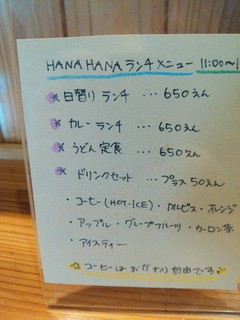 HANA HANA ランチメニュー 11:00〜1
日替り ランチ … 650えん
カレー ランチ … 650えん
うどん 定食 … 650えん
ドリンクセット … プラス 50えん
・コーヒー (HOT・ICE) ・カルピス・オレンジ
・アップル ・グレープフルーツ ・ウーロン茶
・アイスティー
☆ コーヒーはおかわり自由です